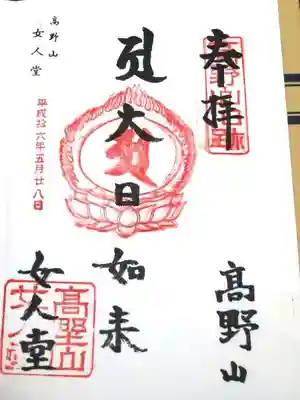 奉拝
高野山
大日如来
女人堂
高野山
女人堂
平成廿六年五月廿八日